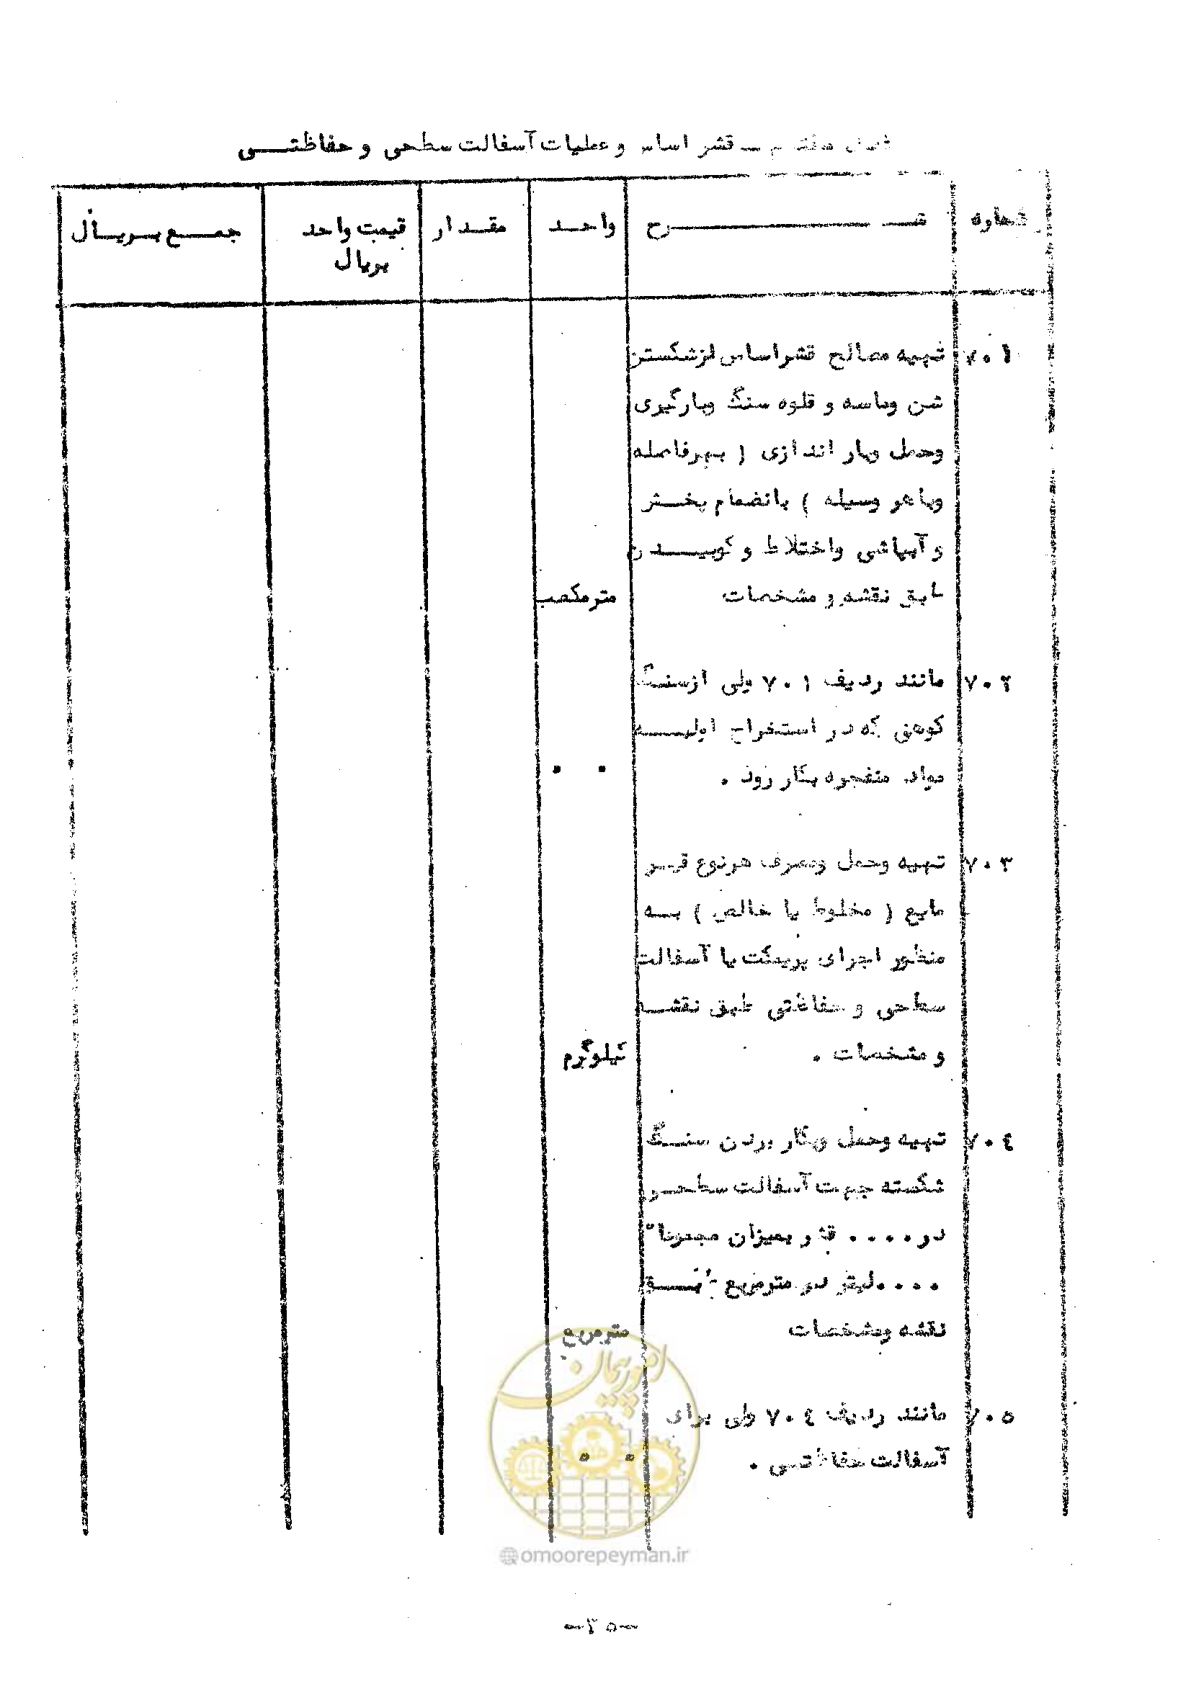 فصل هفتم ــ قشر اساس و عملیات آسفالت سطحی و حفاظتـــی
شماره
شـــــرح
واحــد
مقــدار
قیمت واحد
بریال
جمــع بــریــال
۷۰۱
تهیه مصالح قشراساس ازشکستن
شن وماسه و قلوه سنگ وبارگیری
وحمل وبار اندازی ( بهرفاصله
وباهر وسیله ) بانضمام پخــش
و آبپاشی واختلاط و کوبیــدن
طابق نقشه و مشخصات
مترمکعب
۷۰۲
مانند ردیف ۷۰۱ ولی ازسنگ
کوهی که در استخراج اولیــه
مواد منفجره بکار رود .
" "
۷۰۳
تهیه وحمل ومصرف هرنوع قیــر
مایع ( مخلوط یا خالص ) بــه
منظور اجرای پریمکت یا آسفالت
سطحی و حفاظتی طبق نقشــه
و مشخصات .
کیلوگرم
۷۰۴
تهیه وحمل وبکار بردن سنــگ
شکسته جهت آسفالت سطحــی
در .... قشر بمیزان مجموعا"
.... لیتر در مترمربع طبــق
نقشه ومشخصات
مترمربع
۷۰۵
مانند ردیف ۷۰۴ ولی برای
آسفالت حفاظتــی .
" "
امور پیمان
@omoorepeyman.ir
-۳۵-